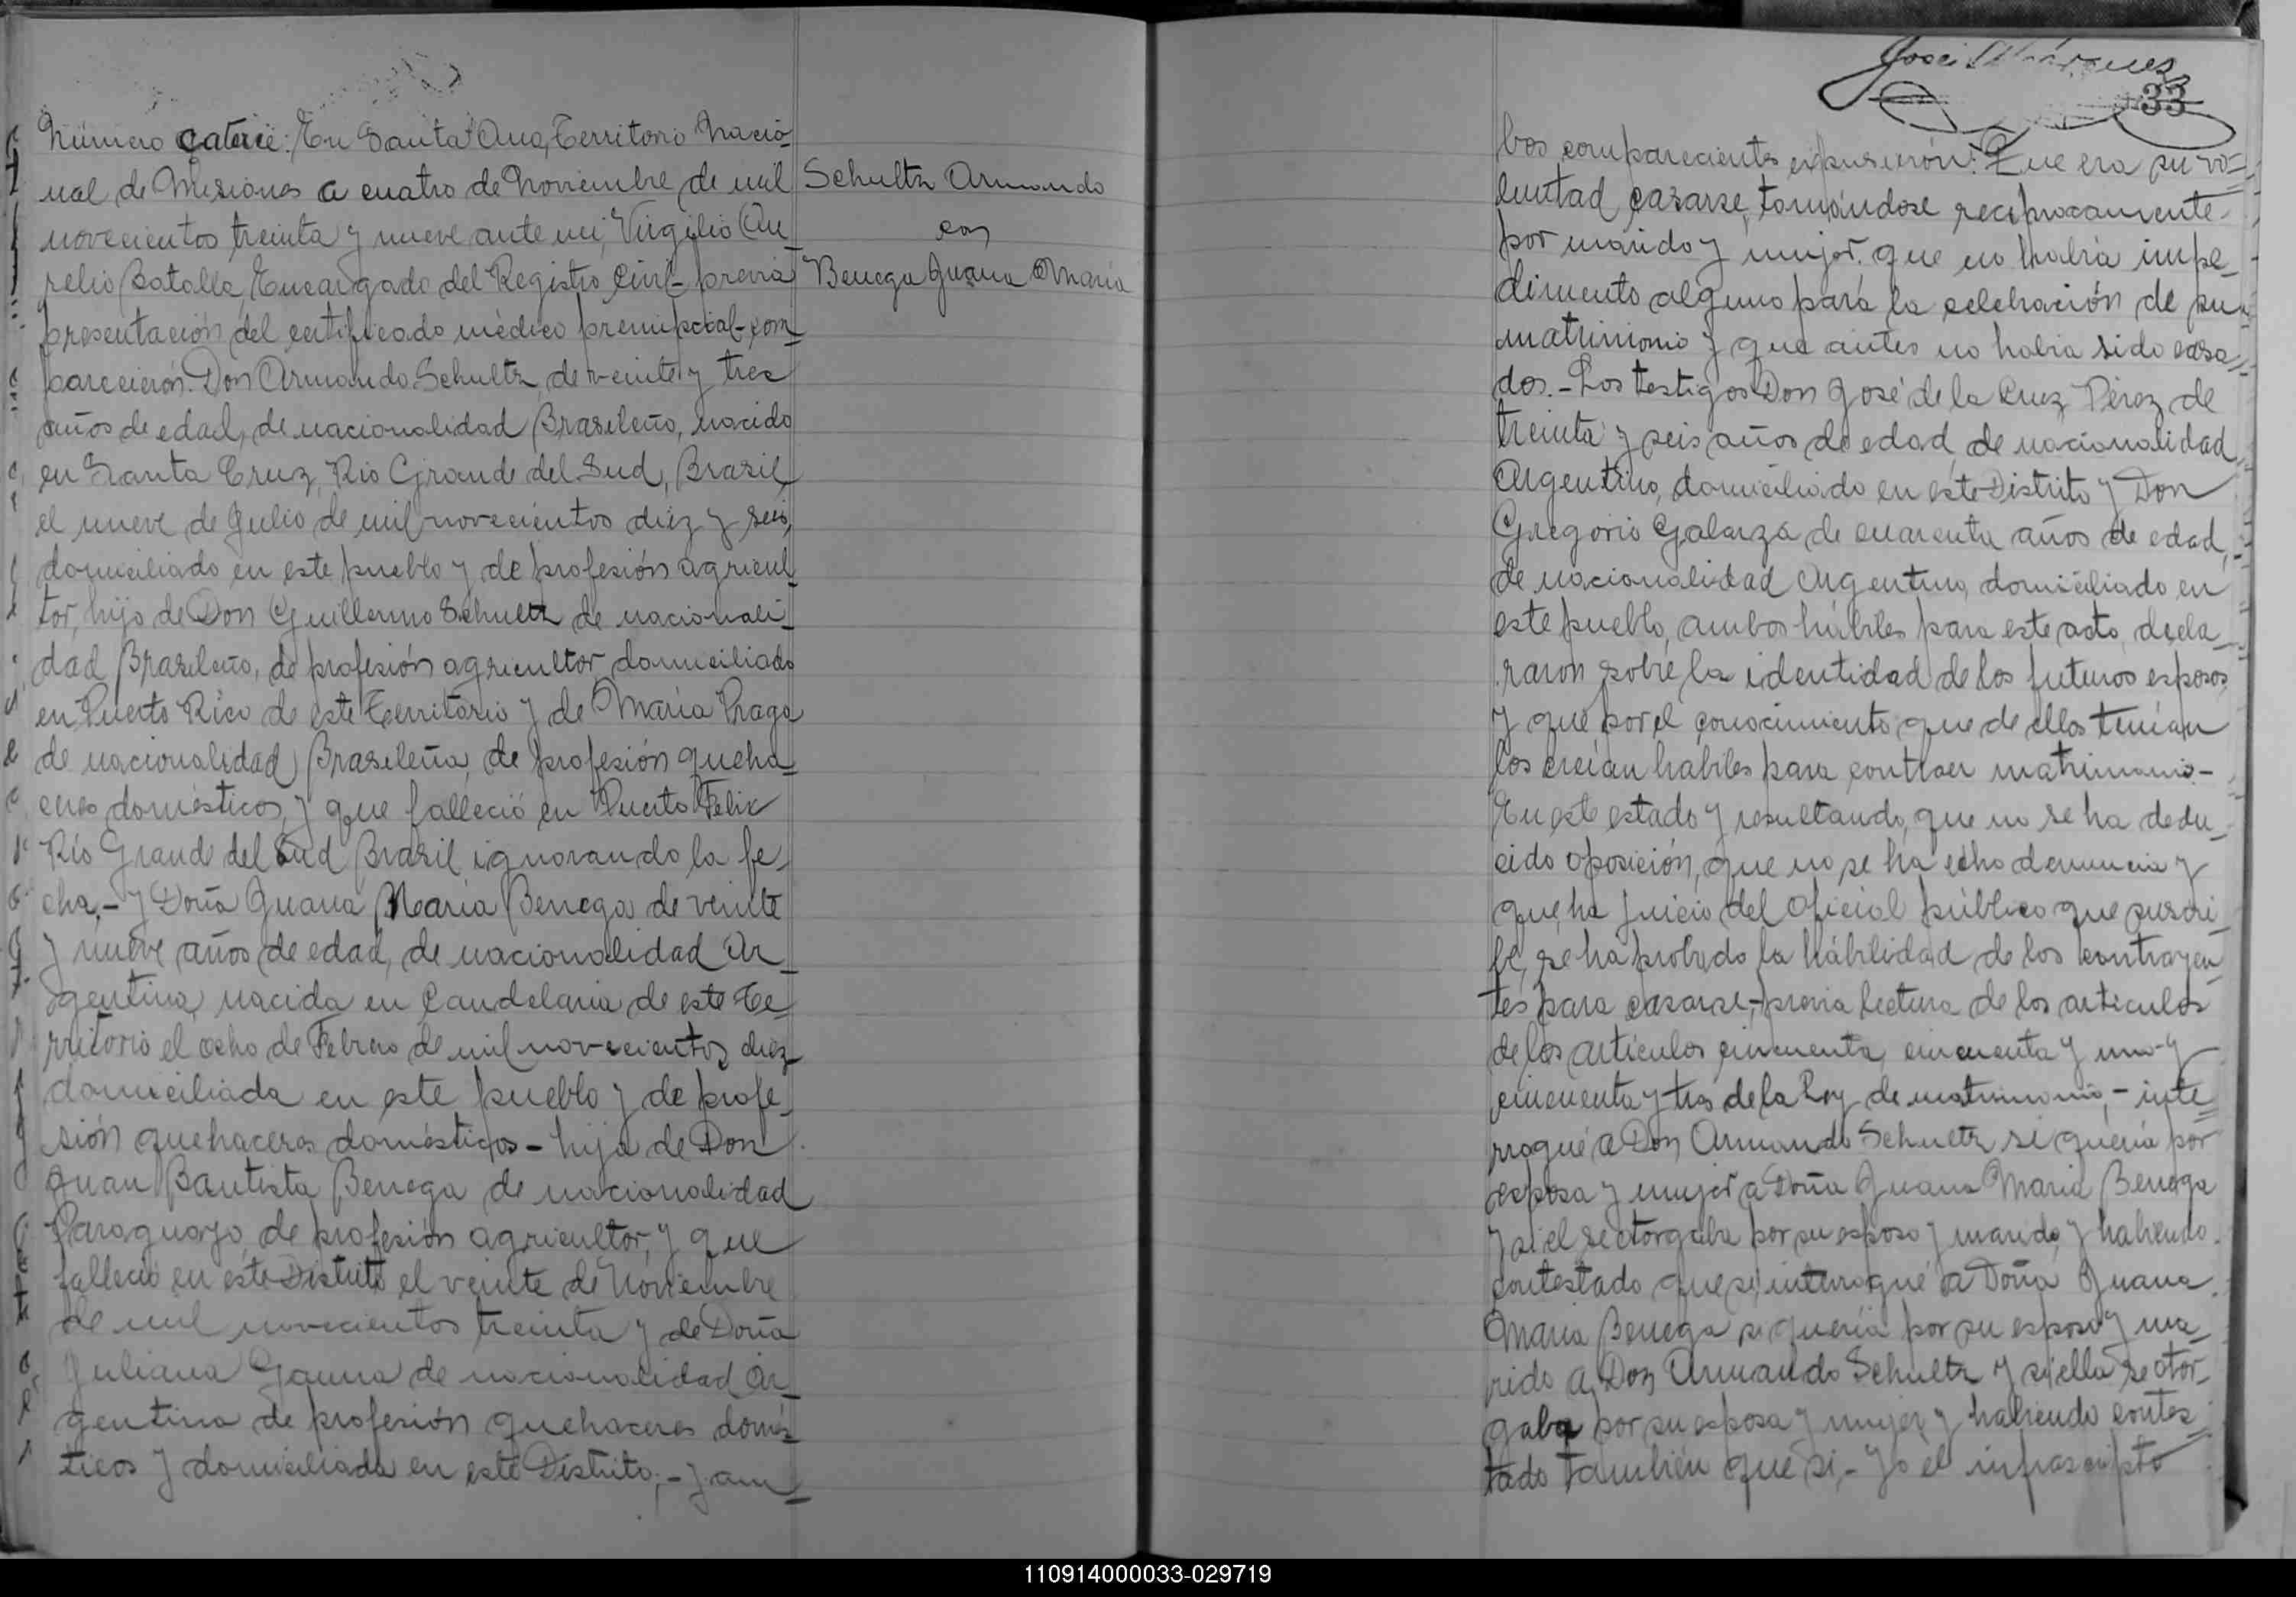 Número catorce: En Santa Ana, Territorio Nacio-
nal de Misiones a cuatro de Noviembre de mil
novecientos treinta y nueve ante mi, Virgilio Au-
relio Batalla, Encargado del Registro Civil - previa
presentación del certificado médico prenupcial - com-
parecieron. Don Armando Schultz, de veinte y tres
años de edad, de nacionalidad Brasileño, nacido
en Santa Cruz, Rio Grande del Sud, Brasil,
el nueve de Julio de mil novecientos diez y seis,
domiciliado en este pueblo y de profesión agricul-
tor, hijo de Don Guillermo Schultz de nacionali-
dad Brasileño, de profesión agricultor, domiciliado
en Puerto Rico de este Territorio y de Maria Praga
de nacionalidad Brasileña, de profesión queha-
ceres domésticos, y que falleció en Puerto Felix
Rio Grande del Sud Brasil ignorando la fe-
cha.- y Doña Juana Maria Benega de veinte
y nueve años de edad, de nacionalidad Ar-
gentina, nacida en Candelaria de este Te-
rritorio el ocho de Febrero de mil novecientos diez
domiciliada en este pueblo y de profe-
sión quehaceres domésticos - hija de Don
Juan Bautista Benega de nacionalidad
Paraguayo, de profesión agricultor, y que
falleció en este Distrito el veinte de Noviembre
de mil novecientos treinta y de Doña
Juliana Gauna de nacionalidad Ar-
gentina de profesión quehaceres domés-
ticos y domiciliada en este Distrito.- y am-
Schultz Armando
con
Benega Juana Maria
José Márques
33
bos comparecientes expusieron: Que era su vo-
luntad casarse, tomándose reciprocamente
por marido y mujer. que no habia impe-
dimento alguno para la celebración de su
matrimonio y que antes no habia sido casa-
dos.- Los testigos Don José de la Cruz Pérez de
treinta y seis años de edad de nacionalidad
Argentino, domiciliado en este Distrito y Don
Gregorio Galarza de cuarenta años de edad,
de nacionalidad Argentino, domiciliado en
este pueblo, ambos hábiles para este acto, decla-
raron sobre la identidad de los futuros esposos
y que por el conocimiento que de ellos tenían
los creían habiles para contraer matrimonio.-
En este estado y resultando, que no se ha dedu-
cido oposición, que no se ha echo denuncia y
que, ha juicio del oficial público que suscri-
be, se ha probado la hábilidad de los contrayen-
tes para casarse,- previa lectura de los articulos
de los articulos cincuenta, cincuenta y uno y
cincuenta y tres de la Ley de matrimonio,- inte-
rrogué a Don Armando Schultz si quería por
esposa y mujer a Doña Juana Maria Benega
y si el se otorgaba por su esposo y marido, y habiendo
contestado que si, interrogué a Doña Juana
Maria Benega si quería por su esposo y ma-
rido a Don Armando Schultz y si ella se otor-
gaba por su esposa y mujer y habiendo contes-
tado también que si.- Yo el infrascripto
110914000033-029719